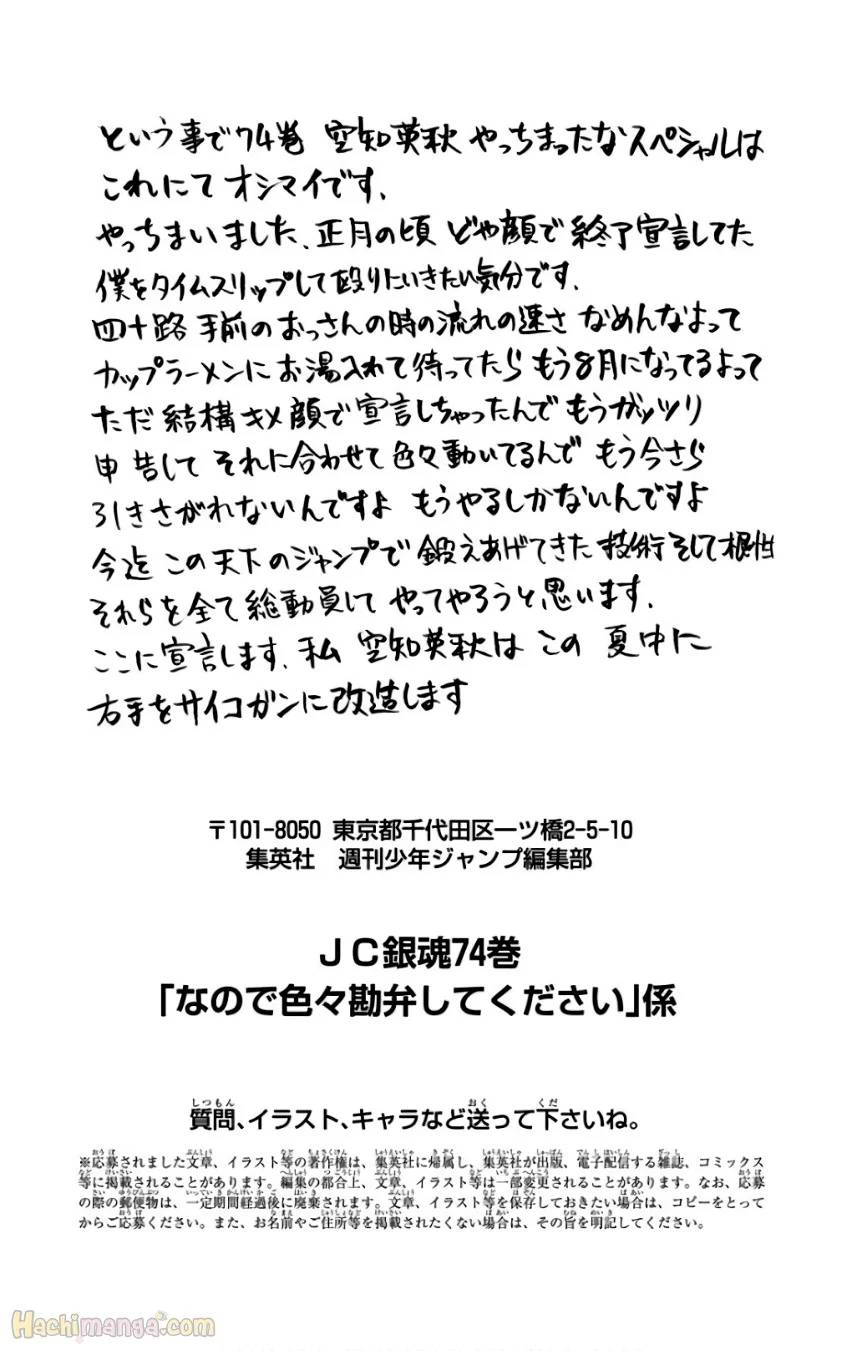 という事で74巻 空知英秋やっちまったなスペシャルは
これにてオシマイです.
やっちまいました、正月の頃 どや顔で終了宣言してた
僕をタイムスリップして殴りにいきたい気分です.
四十路手前のおっさんの時の流れの速さ なめんなよって
カップラーメンにお湯入れて待ってたら もう8月になってるよって
ただ結構キメ顔で宣言しちゃったんで もうガッツリ
申告して それに合わせて色々動いてるんで もう今さら
引きさがれないんですよ もうやるしかないんですよ
今迄 この天下のジャンプで鍛えあげてきた技術そして根性
それらを全て総動員して やってやろうと思います.
ここに宣言します.私 空知英秋は この 夏中に
右手をサイコガンに改造します
〒101-8050 東京都千代田区一ツ橋2-5-10
集英社 週刊少年ジャンプ編集部
JC銀魂74巻
「なので色々勘弁してください」係
質問、イラスト、キャラなど送って下さいね。
※応募されました文章、イラスト等の著作権は、集英社に帰属し、集英社が出版、電子配信する雑誌、コミックス
等に掲載されることがあります。編集の都合上、文章、イラスト等は一部変更されることがあります。なお、応募
の際の郵便物は、一定期間経過後に廃棄されます。文章、イラスト等を保存しておきたい場合は、コピーをとって
からご応募ください。また、お名前やご住所等を掲載されたくない場合は、その旨を明記してください。
Hachimanga.com